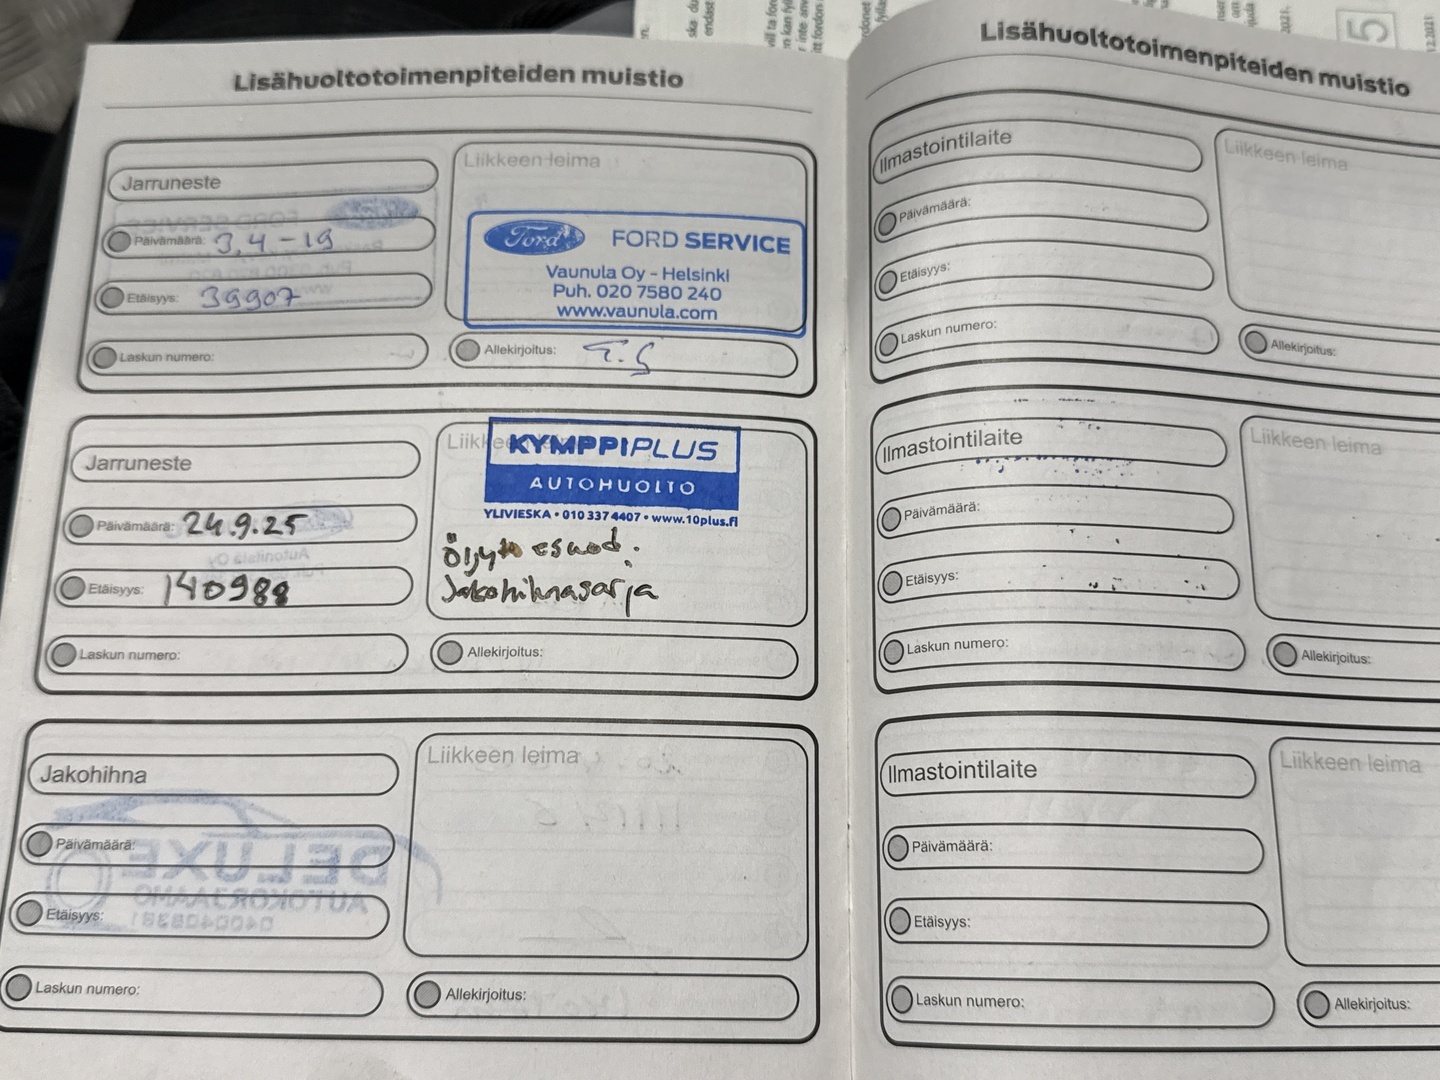 Lisähuoltotoimenpiteiden muistio
Jarruneste
Päivämäärä: 3.4-19
Etäisyys: 39907
Laskun numero:
Liikkeen leima
Ford FORD SERVICE
Vaunula Oy - Helsinki
Puh. 020 7580 240
www.vaunula.com
Allekirjoitus: T.S
Jarruneste
Päivämäärä: 24.9.25
Etäisyys: 140988
Laskun numero:
KYMPPIPLUS
AUTOHUOLTO
YLIVIESKA • 010 337 4407 • www.10plus.fi
Jakohihnasarja
Allekirjoitus:
Jakohihna
Päivämäärä:
Etäisyys:
Laskun numero:
Liikkeen leima
Allekirjoitus:
DELUXE
AUTOKORJAAMO
Lisähuoltotoimenpiteiden muistio
Ilmastointilaite
Päivämäärä:
Etäisyys:
Laskun numero:
Liikkeen leima
Allekirjoitus:
Ilmastointilaite
Päivämäärä:
Etäisyys:
Laskun numero:
Liikkeen leima
Allekirjoitus:
Ilmastointilaite
Päivämäärä:
Etäisyys:
Laskun numero:
Liikkeen leima
Allekirjoitus:
5